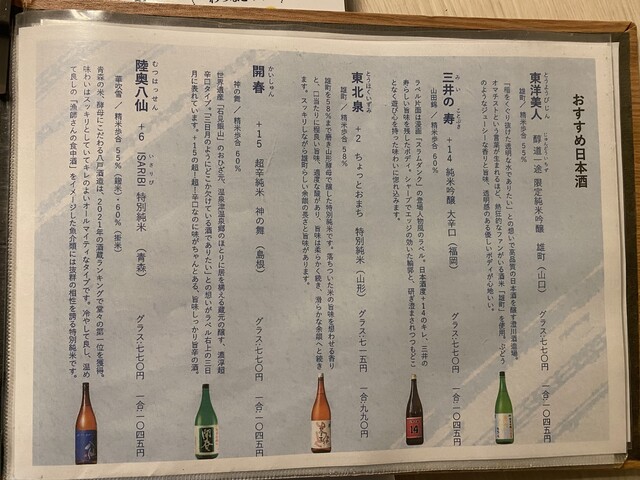 おすすめ日本酒
とうようびじん じゅんどういちず
東洋美人 醇道一途 限定純米吟醸 雄町（山口） グラス:七七〇円 一合:一〇四五円
雄町／精米歩合 55%
「稲をくぐり抜けた透明な水でありたい」との想いで高品質の日本酒を醸す澄川酒造場。
オマチストという言葉が生まれるほど、熱狂的なファンがいる酒米「雄町」を使用。ぶどう
のようなジューシーな香りと旨味、透明感のある優しいボディが心地いい。
みいのことぶき
三井の寿 +14 純米吟醸 大辛口（福岡） グラス:七七〇円 一合:一〇四五円
山田錦／精米歩合 60%
ラベル片面は漫画「スラムダンク」の登場人物風のラベル。日本酒度+14のキレ、三井の
寿らしい旨味を凝縮したボディ。シャープでエッジの効いた輪郭と、研ぎ澄まされつつもどこ
となく遊び心を持った味わいに惚れ込みます。
とうほくいずみ
東北泉 +2 ちょっとおまち 特別純米（山形） グラス:七一五円 一合:九九〇円
雄町／精米歩合 58%
雄町を58%まで磨き山形酵母で醸した特別純米です。落ちついた米の旨味を想わせる香り
と、口当たりに程良い旨味、適度な酸があり、旨味は柔らかく続き、滑らかな余韻へと続き
ます。スッキリしながら雄町らしい余韻の長さと旨味があります。
かいしゅん
開春 +15 超辛純米 神の舞（島根） グラス:七七〇円 一合:一〇四五円
神の舞／精米歩合 60%
世界遺産「石見銀山」のおひざ元、温泉津温泉郷のほとりに居を構える蔵元の醸す、濃淳超
辛口タイプ。「三日月のようにどこか欠けている酒でありたい」との想いがラベル右上の三日
月に表れています。+15の超!超!辛口なのに味がちゃんとある、旨味しっかり旨辛の酒。
むつはっせん いさりび
陸奥八仙 +6 ISARIBI 特別純米（青森） グラス:七七〇円 一合:一〇四五円
華吹雪／精米歩合 55%（麹米）・60%（掛米）
青森の米、酵母にこだわる八戸酒造は、2021年の酒蔵ランキングで堂々の第一位を獲得。
味わいはスッキリとしていてキレのよいオールマイティなタイプです。冷やして良し、温め
て良しの「漁師さんの食中酒」をイメージした魚介類には抜群の相性を誇る特別純米です。